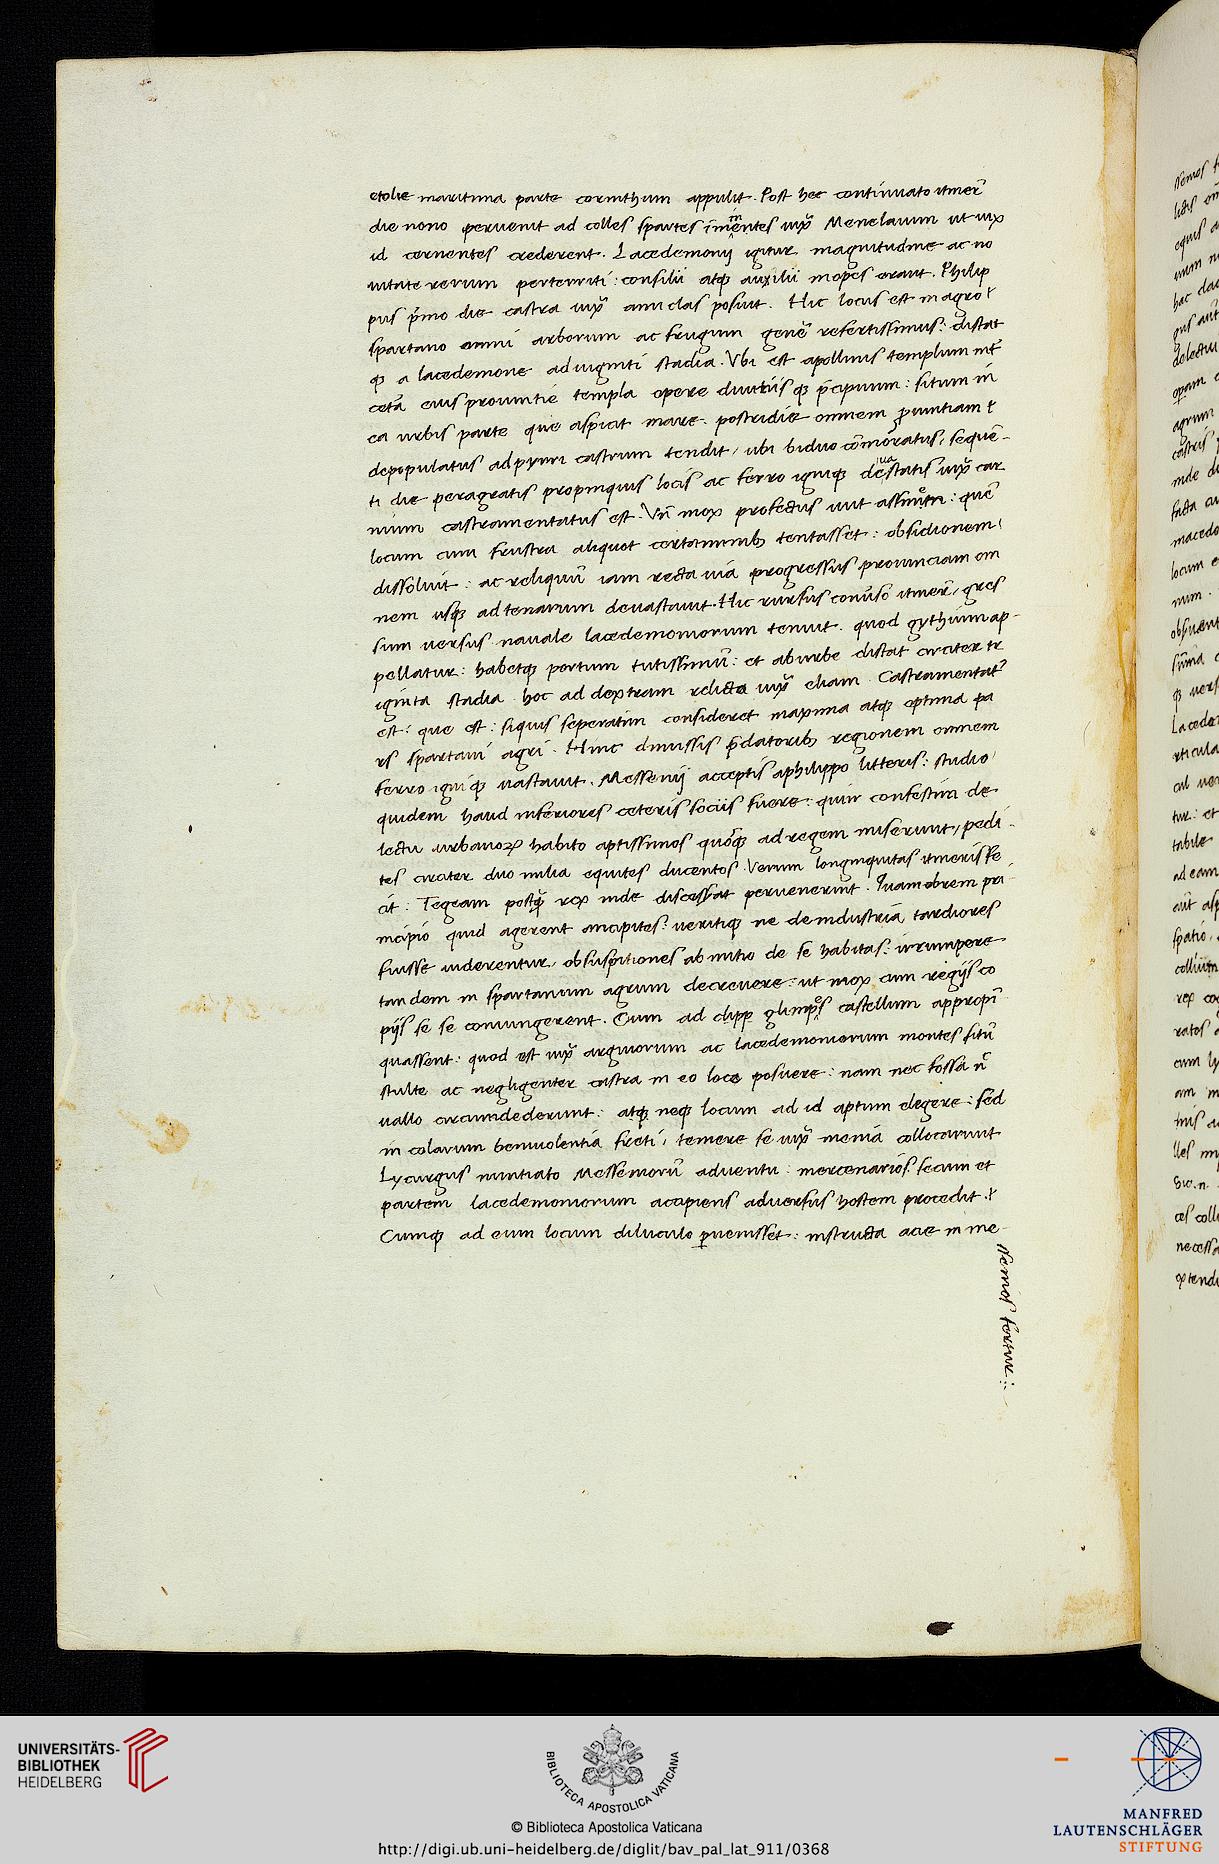 etolie maritima parte corinthum appulit. Post hec continuato itinerẽ
die nono pervenit ad colles spartes iminentes iuxͣ Menelaium ut vix
id cernentes crederent. Lacedemonij igitur magnitudine ac no
vitate rerum perterriti: consilii atqꝫ auxilii inopes erant. Philip
pus p̃mo die castra iuxͣ amiclas posuit. Hic locus est in agro
spartano omni arborum ac frugum genẽ refertissimus: distat
qꝫ a lacedemone ad viginti stadia. Ubi est apollinis templum int̃
cetã eius provintie templa opere divitiis qꝫ p̃cipuum: situm in
ea urbis parte que aspicit mare. postridie omnem ꝓvintiam
depopulatus ad pyrri castrum tendit, ubi biduo cõmoratus, sequẽ-
ti die peragratis propinquis locis ac ferro igniqꝫ devastatis iuxͣ car
nium castramentatus est. Vñ mox profectus
locum cum frustra aliquot certaminibꝫ tentasset: obsidionem
dissolvit: ac reliquũ iam recta via progressus provinciam om
nem usqꝫ ad tenarum devastavit. Hic rursus converso itinerẽ, gres
sum versus navale lacedemoniorum tenuit. quod gythium ap-
pellatur: habetqꝫ portum tutissimũ: et ab urbe distat circiter tr
iginta stadia. hoc ad dextram relicta iuxͣ eliam. Castramentatꝰ
est: que est: siquis seperatim consideret maxima atqꝫ optima pa
rs spartani agri. Hinc dimissis p̃datoribꝫ regionem omnem
ferro igniqꝫ vastavit. Messenij acceptis a philippo litteris: studio
quidem haud inferiores ceteris sociis fuere: quin confestim de
lectu urbanoꝝ habito aptissimos quosqꝫ ad regem miserunt, pedi-
tes circiter duo milia equites ducentos. Verum longinquitas itineris fe
cit: Tegeam postqꝫ rex inde discesserat pervenerint. Quamobrem pri-
ncipio quid agerent ancipites: veritiqꝫ ne de industria tardiores
fuisse viderentur, ob suspitiones ab initio de se habitas: irrumpere
tandem in spartanum agrum decrevere: ut mox cum regijs co
pijs se se coniungerent. Cum ad glimpes castellum appropĩ-
quassent: quod est iuxͣ argivorum ac lacedemoniorum montes sitũ
stulte ac negligenter castra in eo loco posuere: nam nec fossã nͨ
vallo circumdederunt: atqꝫ neqꝫ locum ad id aptum elegere: sed
incolarum benivolentia freti, temere se iuxͣ menia collocarunt
Lycurgus nuntiato Messeniorũ adventu: mercenarios secum et
partem lacedemoniorum accipiens adversus hostem procedit.
Cumqꝫ ad eum locum diluculo ꝑvenisset: instructa acie in me-
ssenios fertur:
UNIVERSITÄTS-
BIBLIOTHEK
HEIDELBERG
BIBLIOTECA APOSTOLICA VATICANA
© Biblioteca Apostolica Vaticana
http://digi.ub.uni-heidelberg.de/diglit/bav_pal_lat_911/0368
MANFRED
LAUTENSCHLÄGER
STIFTUNG